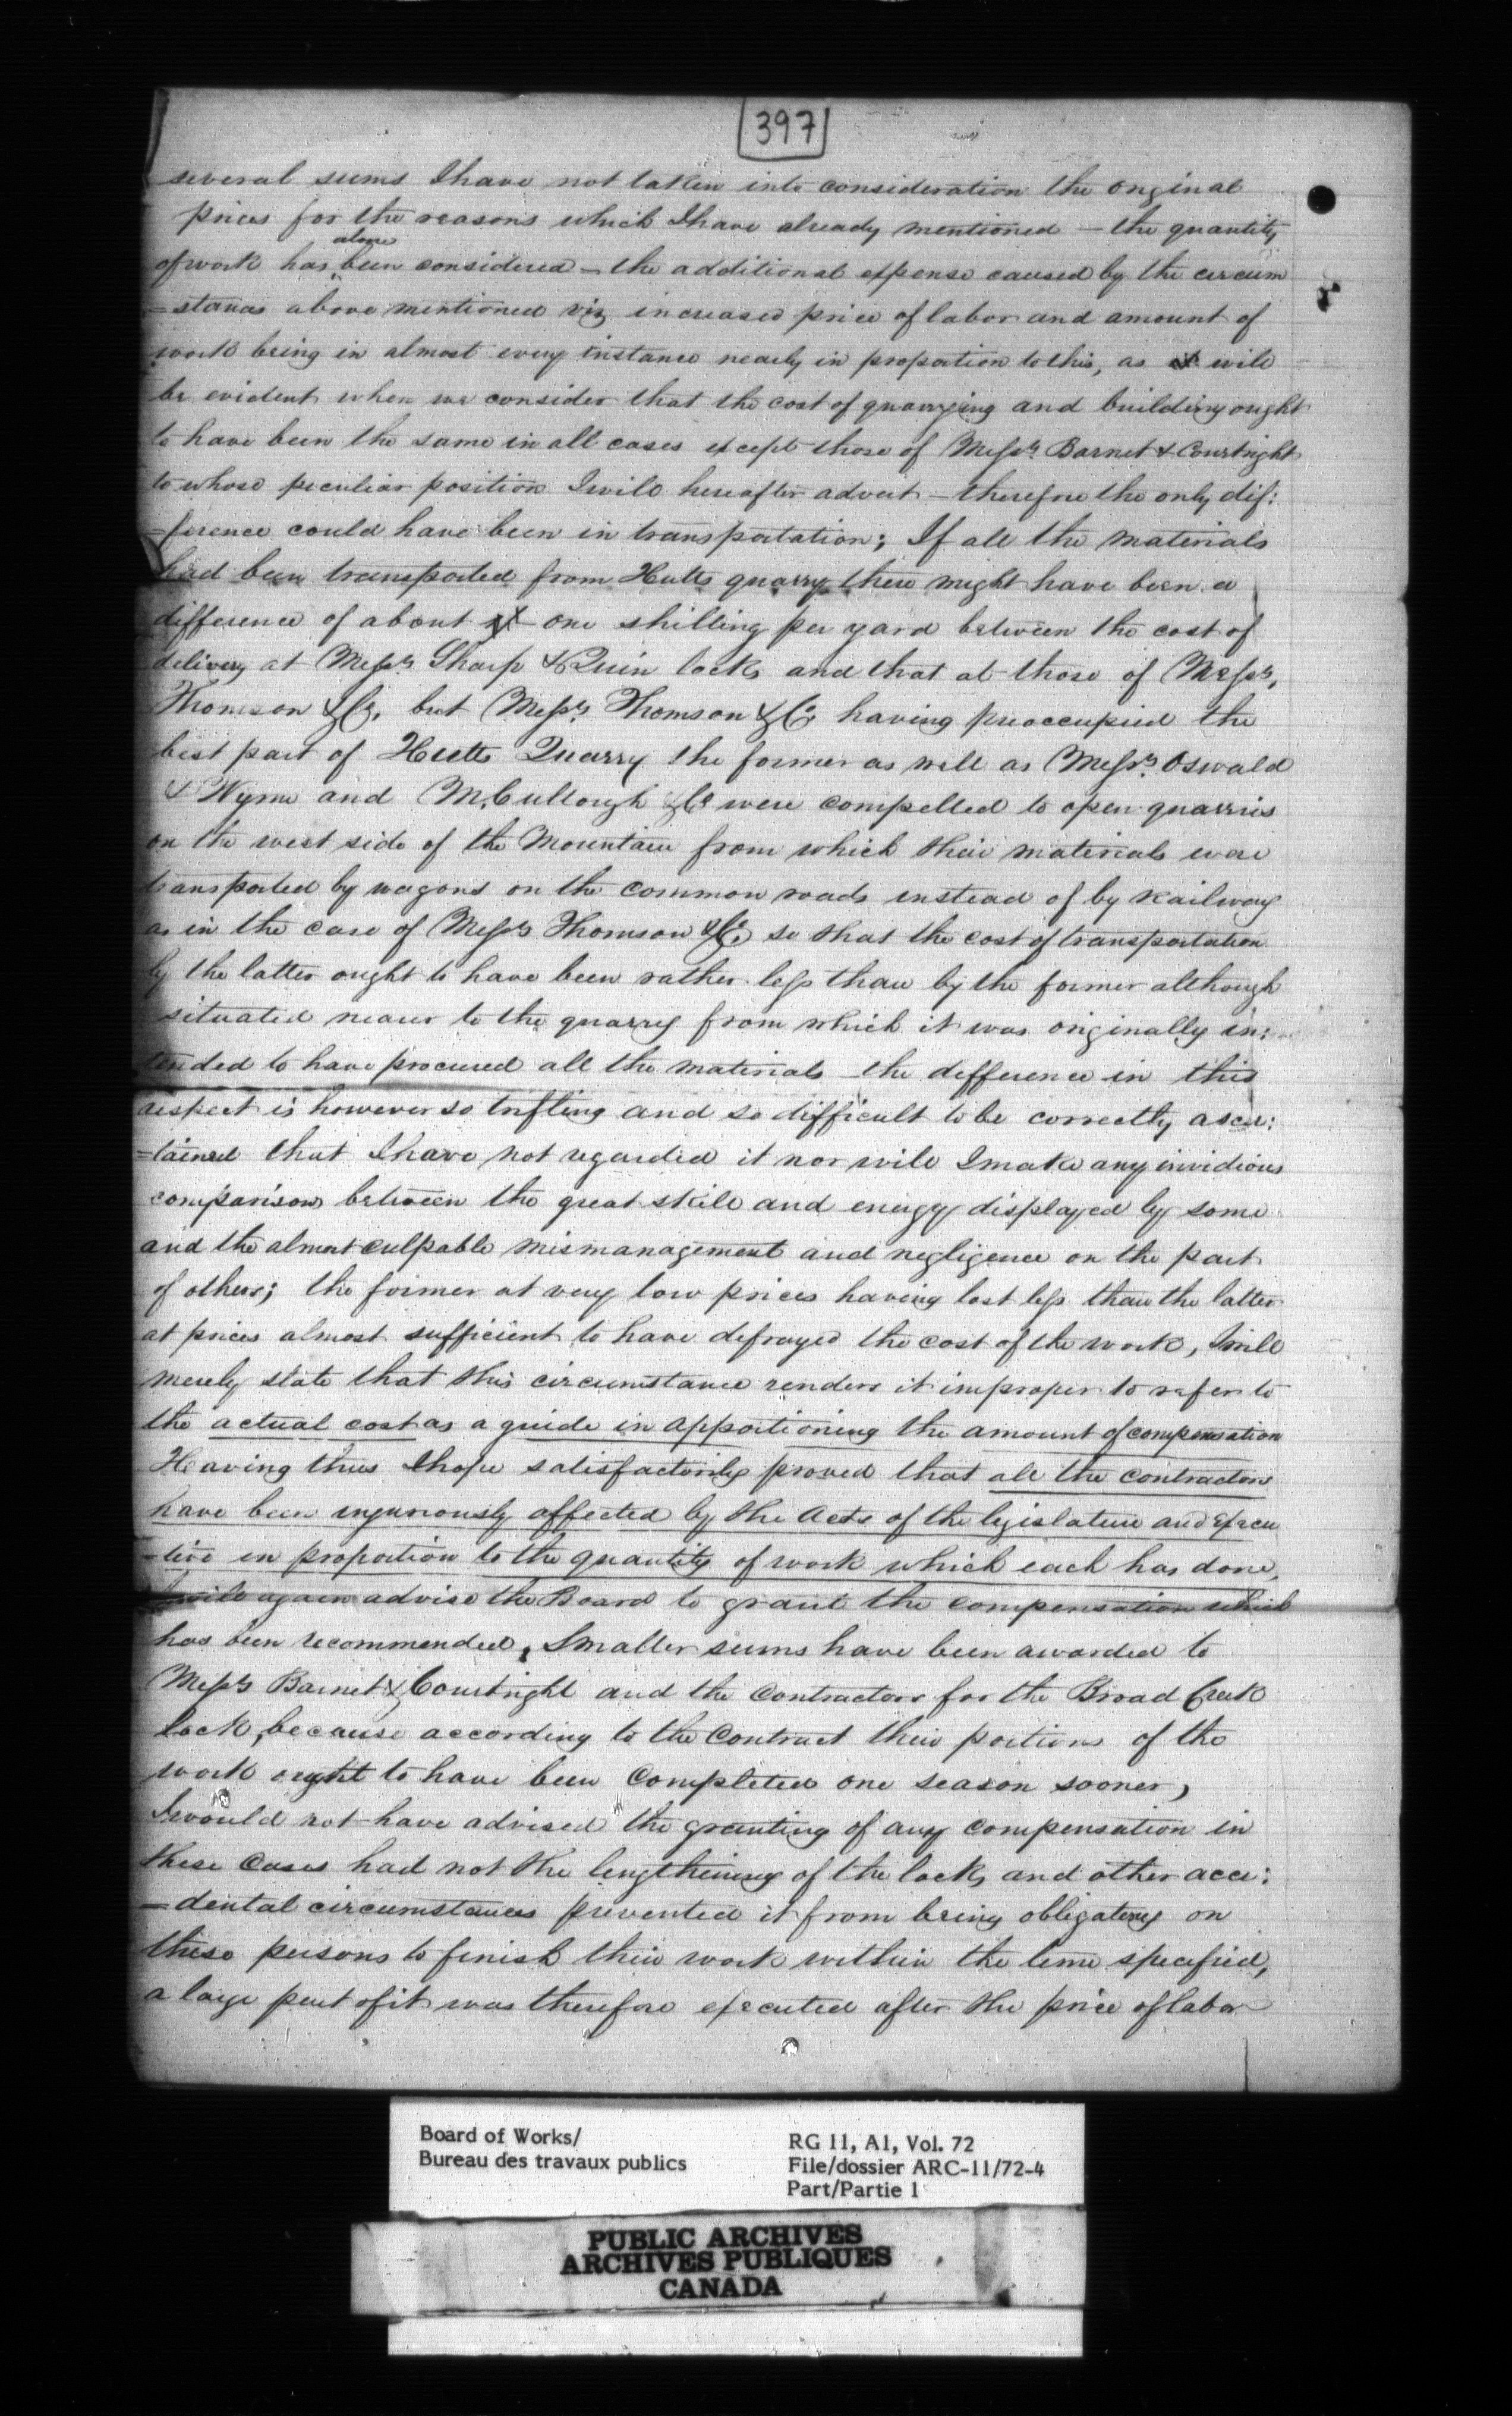 397
several sums I have not taken into consideration the original
prices for the reasons which I have already mentioned — the quantity
alone
of work has been considered — the additional expense caused by the circum
=stances above mentioned viz increased price of labor and amount of
work being in almost every instance nearly in proportion to this, as it will
be evident when we consider that the cost of quarrying and building ought
to have been the same in all cases except those of Messrs. Barnet & Courtright
to whose peculiar position I will hereafter advert — therefore the only dif:
=ference could have been in transportation; If all the materials
had been transported from Hutts quarry there might have been a
difference of about one shilling per yard between the cost of
delivery at Messrs Sharp & Quin locks and that at those of Messrs,
Thomson & Co, but Messrs Thomson & Co having preoccupied the
best part of Hutts Quarry the former as well as Messrs. Oswald
& Wynn and McCullough & Co were compelled to open quarries
on the west side of the Mountain from which their materials were
transported by wagons on the common roads instead of by Railway
as in the case of Messrs Thomson & Co, so that the cost of transportation
by the latter ought to have been rather less than by the former although
situated nearer to the quarry from which it was originally in:
tended to have procured all the materials the difference in this
respect is however so trifling and so difficult to be correctly ascer:
=tained that I have not regarded it nor will I make any invidious
comparisons between the great skill and energy displayed by some
and the almost culpable mismanagement and negligence on the part
of others; the former at very low prices having lost less than the latter
at prices almost sufficient to have defrayed the cost of the work, I will
merely state that this circumstance renders it improper to refer to
the actual cost as a guide in apportioning the amount of compensation
Having thus I hope satisfactorily proved that all the contractors
have been injuriously affected by the Acts of the legislature and Execu
=tive in proportion to the quantity of work which each has done,
I will again advise the Board to grant the compensation which
has been recommended, Smaller sums have been awarded to
Messrs Barnet & Courtright and the Contractors for the Broad Creek
lock, because according to the Contract their portions of the
work ought to have been Completed one season sooner,
I would not have advised the granting of any compensation in
these Cases had not the lengthening of the locks and other acci:
=dental circumstances prevented it from being obligatory on
these persons to finish their work within the time specified,
a large part of it was therefore executed after the price of labor
Board of Works/
Bureau des travaux publics
RG 11, A1, Vol. 72
File/dossier ARC-11/72-4
Part/Partie 1
PUBLIC ARCHIVES
ARCHIVES PUBLIQUES
CANADA